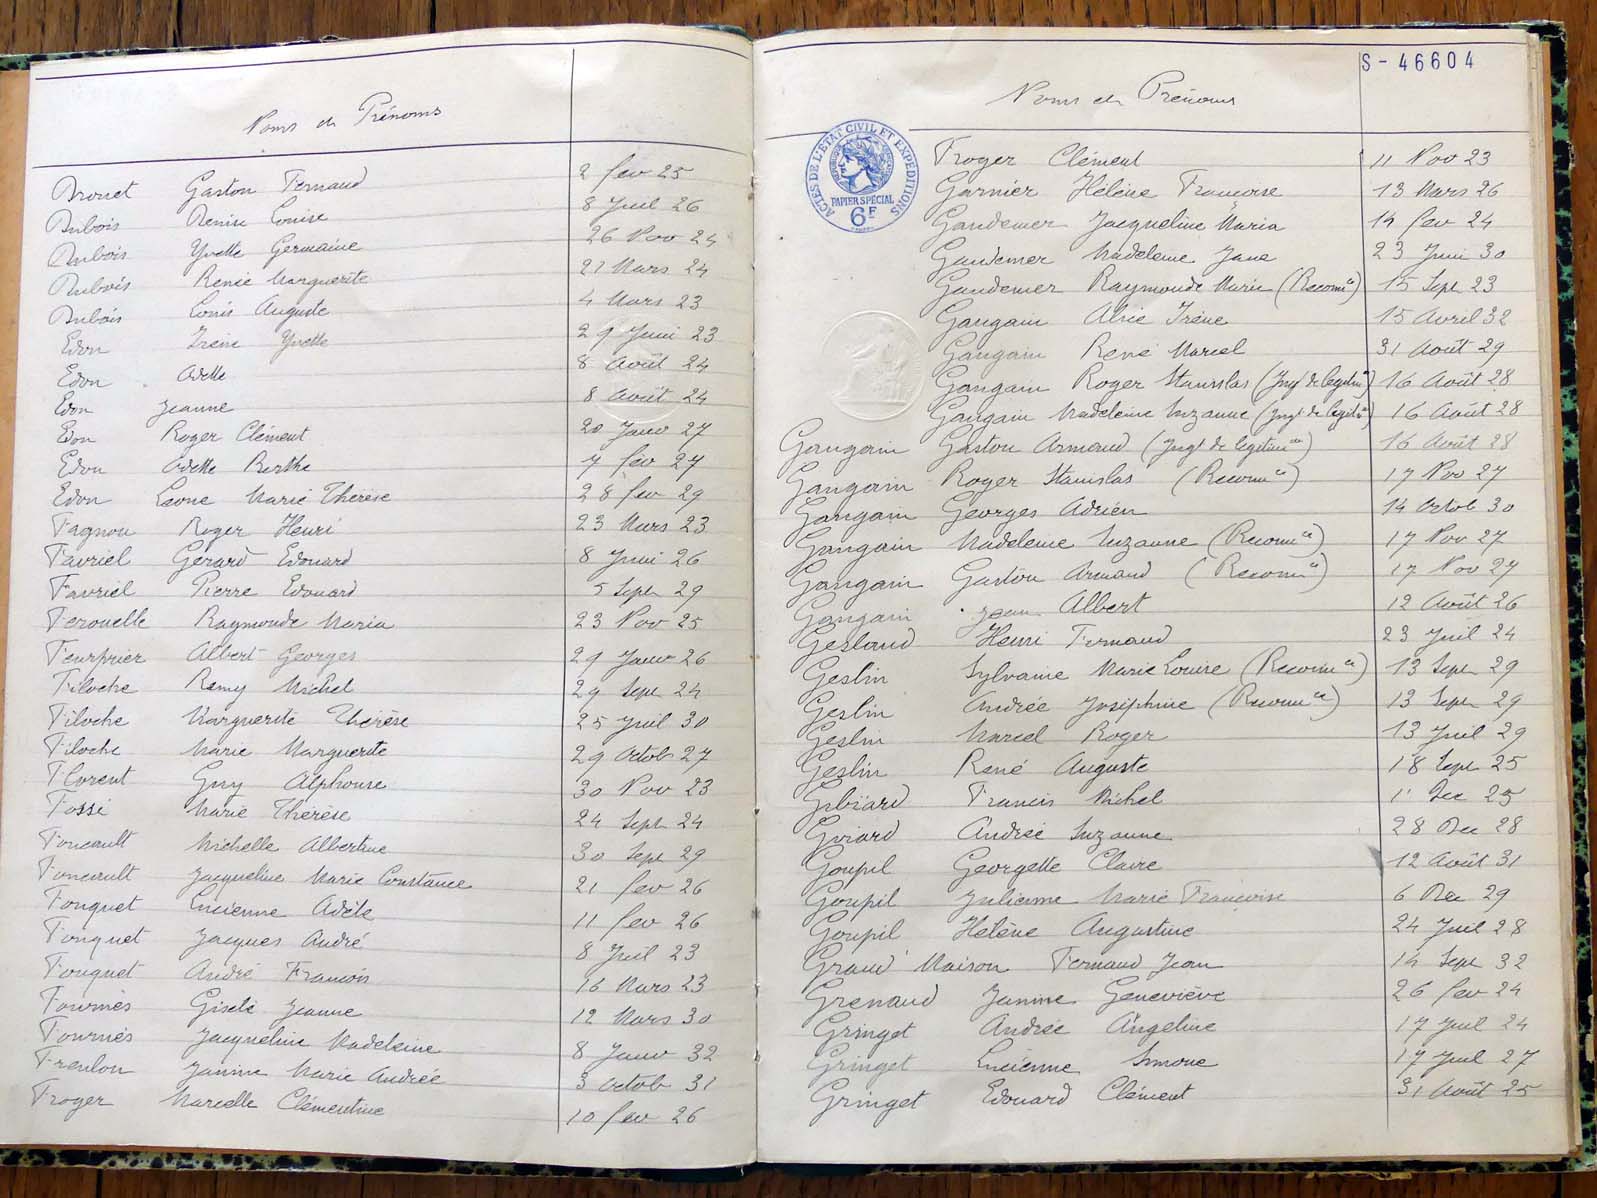 Noms et Prénoms
Drouet Gaston Fernand 2 fev 25
Dubois Denise Louise 8 Juil 26
Dubois Yvette Germaine 26 Nov 24
Dubois Renée Marguerite 21 Mars 24
Dubois Louis Auguste 4 Mars 23
Edon Irène Yvette 29 Juin 23
Edon Odette 8 Août 24
Edon Jeanne 8 Août 24
Edon Roger Clément 20 Janv 27
Edon Odette Berthe 7 fev 27
Edon Leone Marie Thérèse 28 fev 29
Fagnou Roger Henri 23 Mars 23
Favriel Gérard Edouard 8 Juin 26
Favriel Pierre Edouard 5 Sept 29
Ferouelle Raymonde Maria 23 Nov 25
Feurprier Albert Georges 29 Janv 26
Filoche Remy Michel 29 Sept 24
Filoche Marguerite Thérèse 25 Juil 30
Filoche Marie Marguerite 29 Octob 27
Florent Guy Alphonse 30 Nov 23
Fossé Marie Thérèse 24 Sept 24
Foucault Michelle Albertine 30 Sept 29
Foucault Jacqueline Marie Constance 21 fev 26
Fouquet Lucienne Adèle 11 fev 26
Fouquet Jacques André 8 Juil 23
Fouquet André François 16 Mars 23
Fournès Gisèle Jeanne 12 Mars 30
Fournès Jacqueline Madeleine 8 Janv 32
Frenlon Janine Marie Andrée 3 Octob 31
Froger Marcelle Clémentine 10 fev 26
S-46604
Noms et Prénoms
ACTES DE L'ETAT CIVIL ET EXPEDITIONS
PAPIER SPECIAL
6F
Froger Clément 11 Nov 23
Garnier Hélène Françoise 13 Mars 26
Gaudemer Jacqueline Maria 14 fev 24
Gaudemer Madeleine Jane 23 Juin 30
Gaudemer Raymonde Marie (Reconn ce) 15 Sept 23
Gangain Alice Irène 15 Avril 32
Gangain René Marcel 31 Août 29
Gangain Roger Stanislas (Jugt de legitim on) 16 Août 28
Gangain Madeleine Suzanne (Jugt de legitim on) 16 Août 28
Gangain Gaston Armand (Jugt de legitim on) 16 Août 28
Gangain Roger Stanislas (Reconn ce) 17 Nov 27
Gangain Georges Adrien 14 Octob 30
Gangain Madeleine Suzanne (Reconn ce) 17 Nov 27
Gangain Gaston Armand (Reconn ce) 17 Nov 27
Gangain Jean Albert 12 Août 26
Gesland Henri Fernand 23 Juil 24
Geslin Sylvaine Marie Louise (Reconn ce) 13 Sept 29
Geslin Andrée Joséphine (Reconn ce) 13 Sept 29
Geslin Marcel Roger 13 Juil 29
Geslin René Auguste 18 Sept 25
Gibiard Francis Michel 1r Dec 25
Goiard Andrée Suzanne 28 Dec 28
Goupil Georgette Claire 12 Août 31
Goupil Julienne Marie Françoise 6 Dec 29
Goupil Hélène Augustine 24 Juil 28
Grand'Maison Fernand Jean 14 Sept 32
Grenaud Janine Geneviève 26 fev 24
Gringet Andrée Angeline 17 Juil 24
Gringet Lucienne Simone 17 Juil 27
Gringet Edouard Clément 31 Août 25